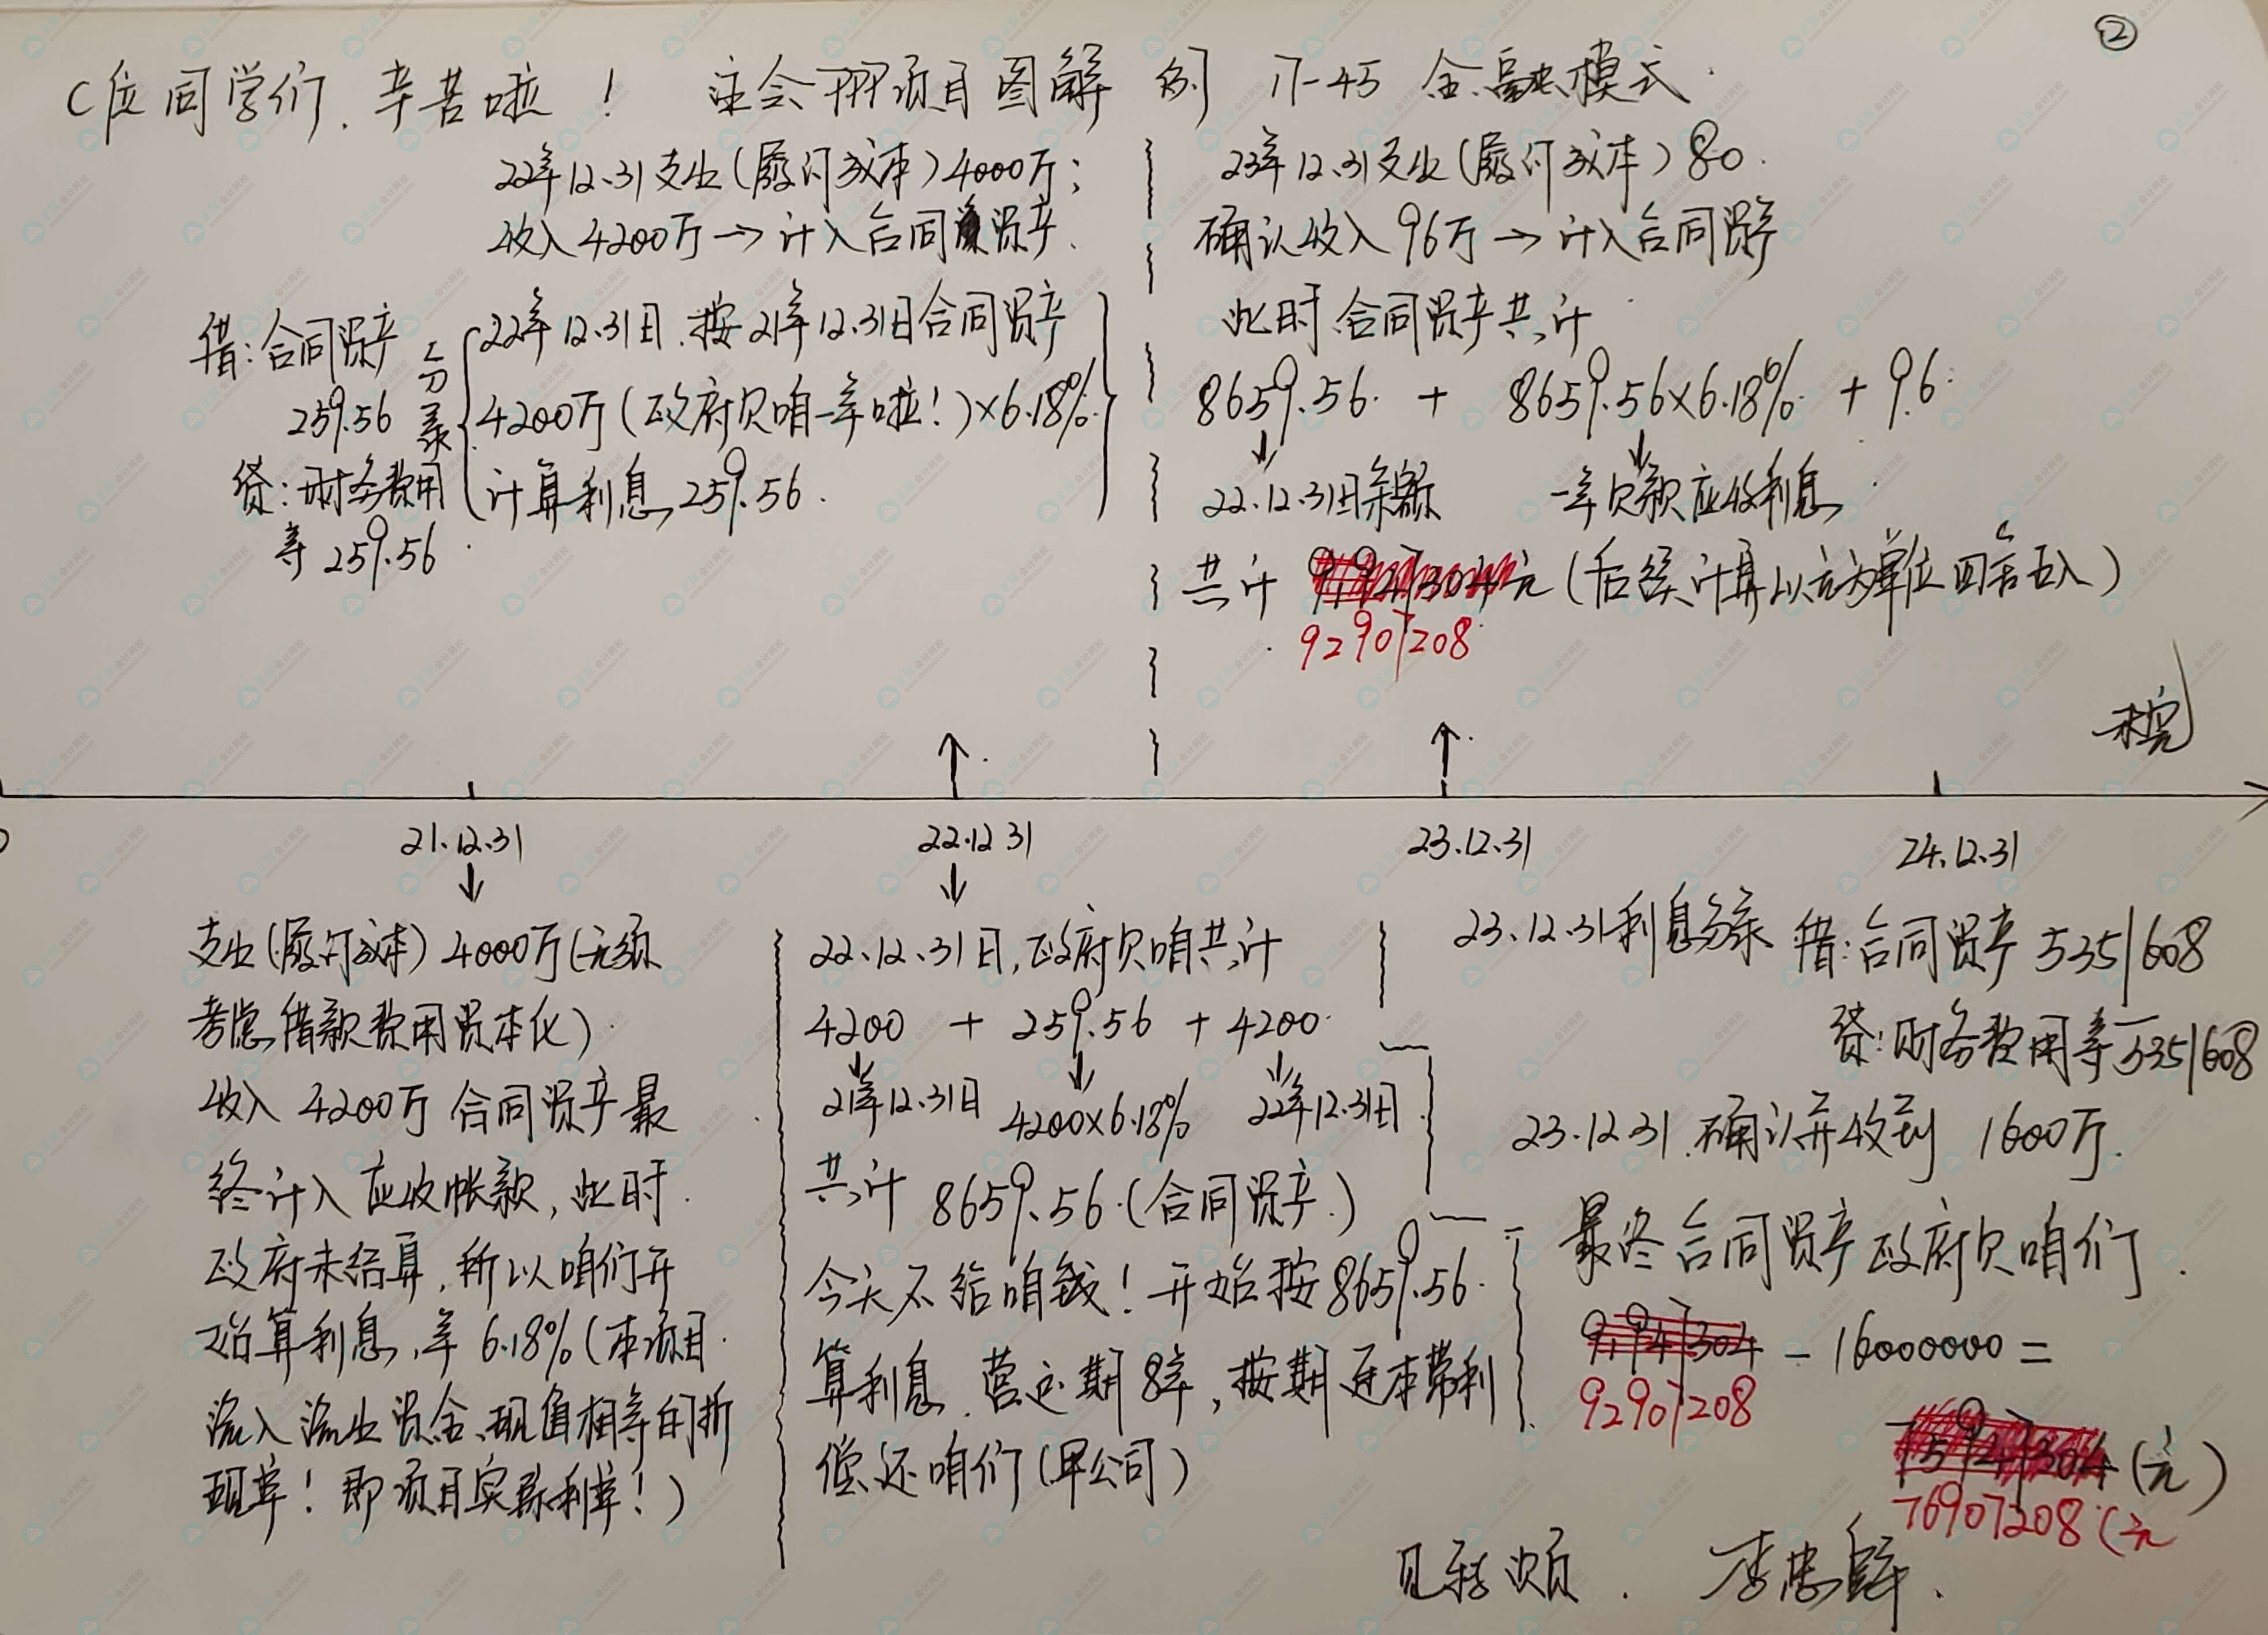 ②
C位同学们、辛苦啦! 注会PPP项目图解 例 17-45 金融模式.
22年12.31支出(履约成本)4000万;
收入4200万→计入合同资产.
借:合同资产
259.56
贷:财务费用
等 259.56
分录
22年12.31日.按21年12.31日合同资产
4200万(政府欠咱一年啦!)×6.18%
计算利息,259.56.
23年12.31支出(履约成本)80.
确认收入96万→计入合同资产
此时.合同资产共计
8659.56. + 8659.56×6.18% + 96.
↓ ↓
22.12.31日余额 一年欠款应收利息.
共计 元(后续计算以元为单位四舍五入)
92907208
未完
21.12.31 22.12.31 23.12.31 24.12.31
支出(履约成本)4000万(无须
考虑借款费用资本化)
收入4200万 合同资产最
终计入应收帐款,此时.
政府未结算,所以咱们开
始算利息,年6.18%(本项目
流入流出资金、现值相等的折
现率!即项目实际利率!)
22.12.31日,政府欠咱共计
4200 + 259.56 + 4200.
↓ ↓ ↓
21年12.31日 4200×6.18% 22年12.31日
共计 8659.56.(合同资产.)
今天不给咱钱!开始按8659.56.
算利息.营运期8年,按期还本带利
偿还咱们(甲公司)
23.12.31利息分录 借:合同资产 5351608
贷:财务费用等 5351608
23.12.31.确认并收到 1600万.
最终合同资产政府欠咱们.
- 16000000 =
92907208
(元)
76907208(元
李忠魁.